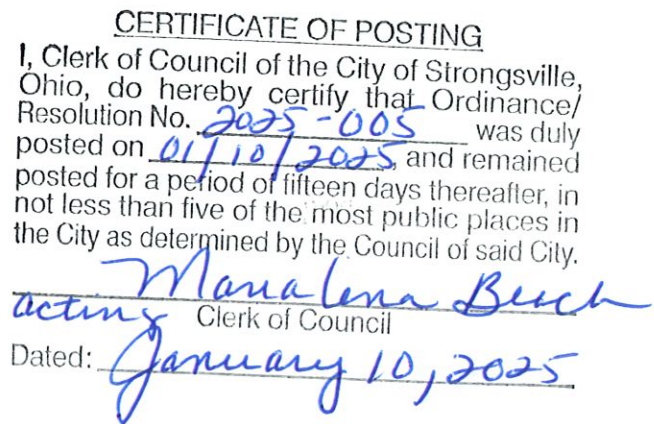 CERTIFICATE OF POSTING
I, Clerk of Council of the City of Strongsville,
Ohio, do hereby certify that Ordinance/
Resolution No. 2025-005 was duly
posted on 01/10/2025, and remained
posted for a period of fifteen days thereafter, in
not less than five of the most public places in
the City as determined by the Council of said City.
acting Clerk of Council
Dated: January 10, 2025